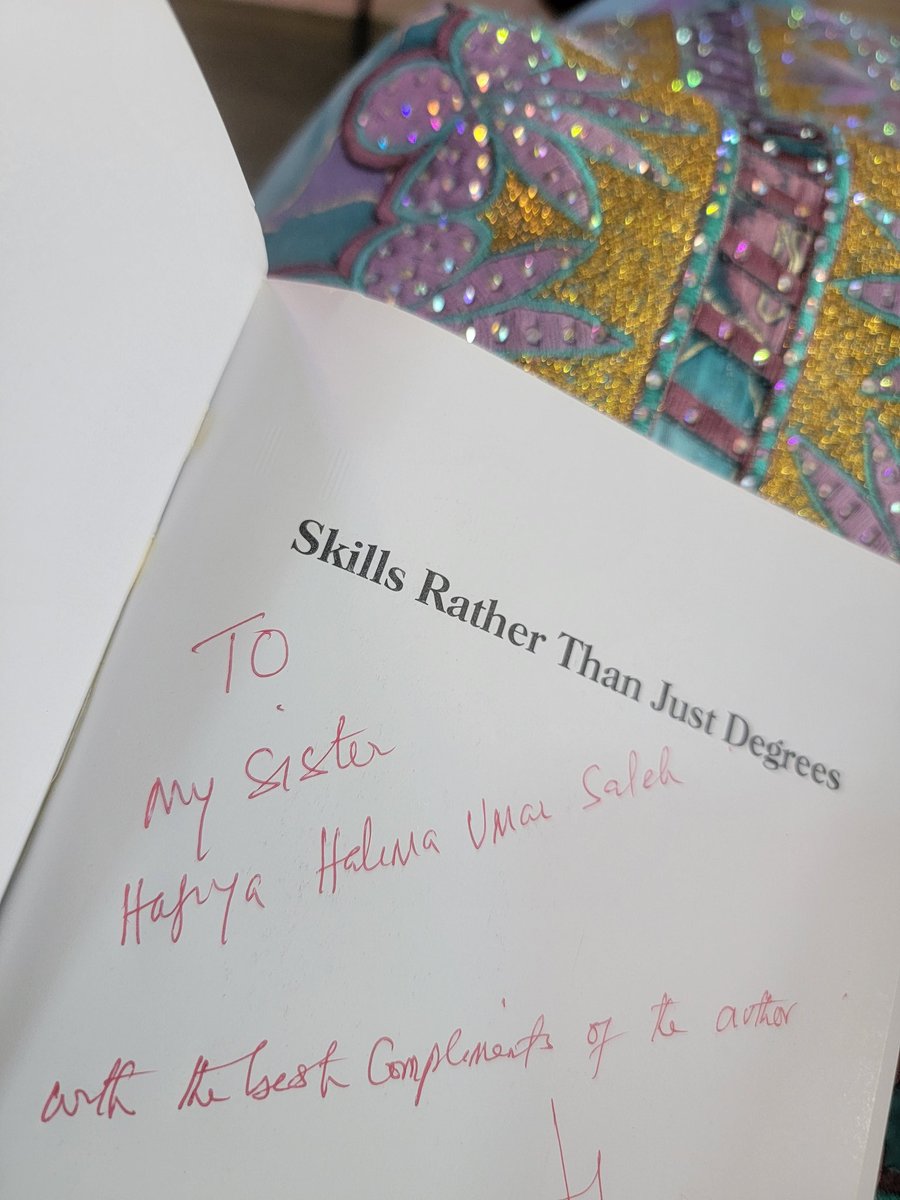 Skills Rather Than Just Degrees
TO
My Sister
Hajiya Halima Umar Saleh
with the best Compliments of the author